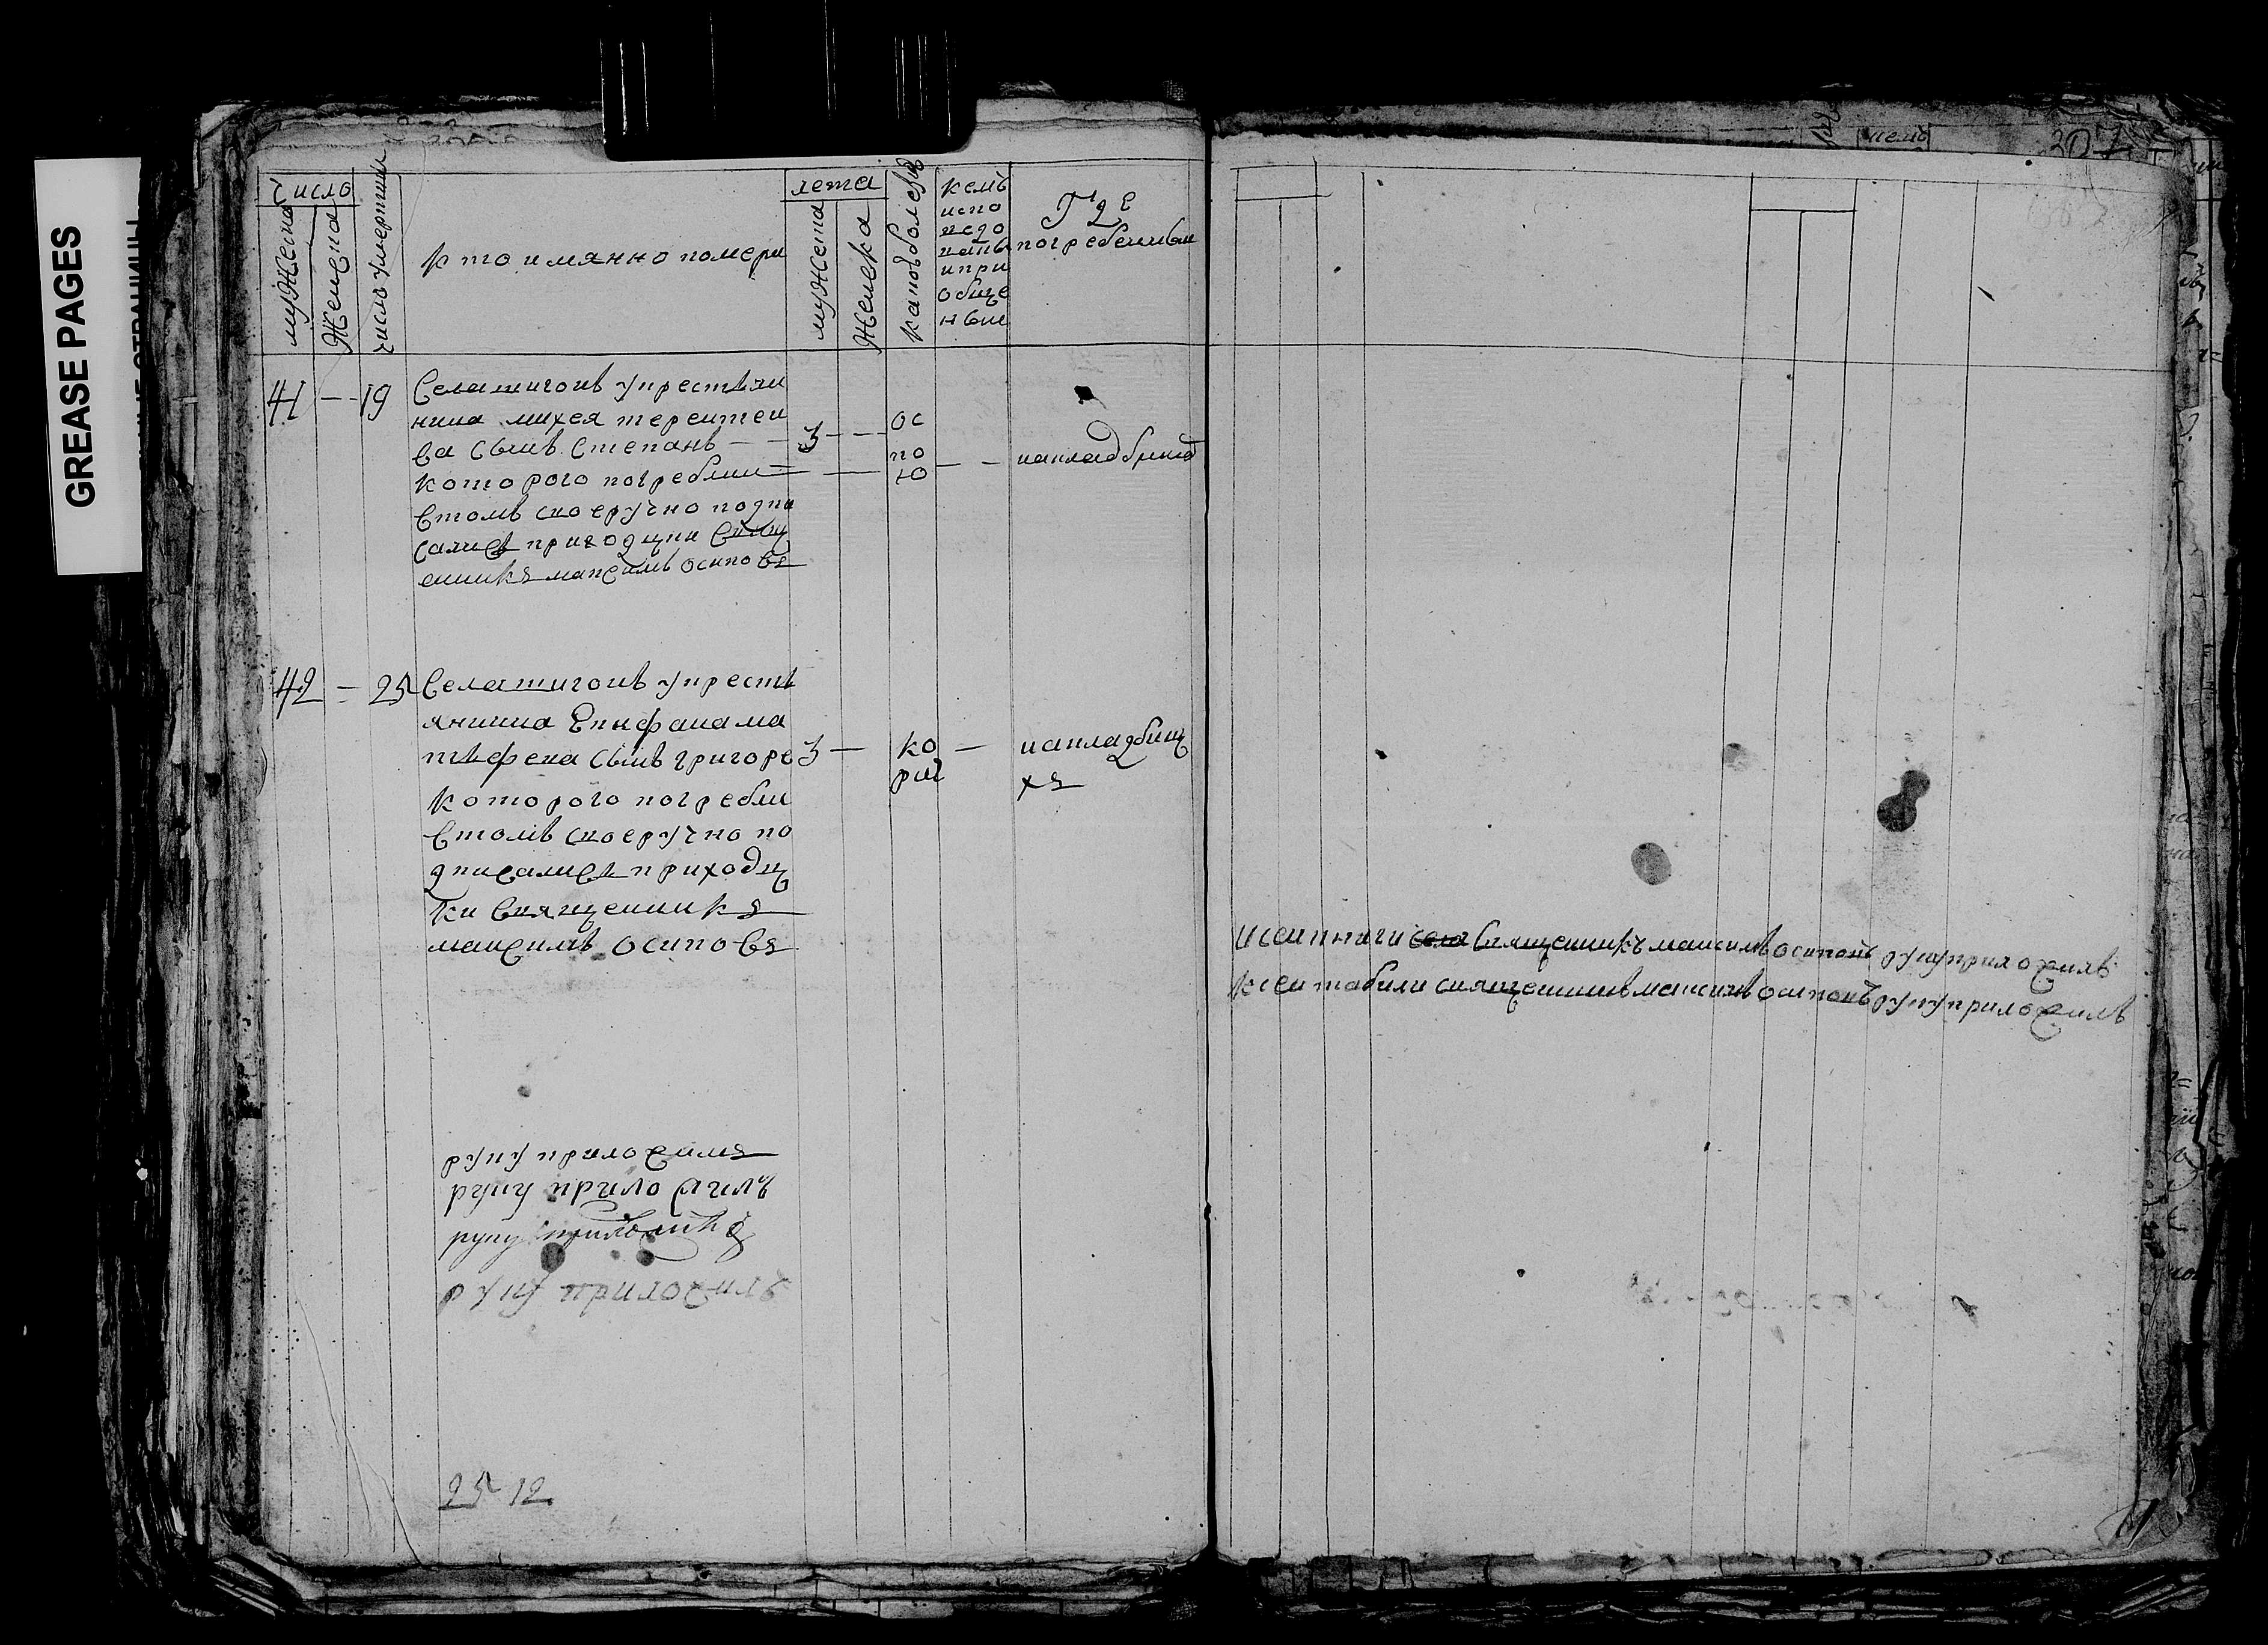 GREASE PAGES
число
мужеска
женска
число умертвии
кто имянно померъ
лета
мужеска
женска
какою болезнию
кемъ
испо
ведо
ваны
и при
обще
ны
Где
погребены
41 — 19 Села тигоив у крестьяни
нина михея терентеи
ва сынъ Степанъ 3 оспою на кладбище
которого погребли
Втомъ своеручно подпи
сались приходцки Свящ
енникъ максимъ осиповъ
42 — 25 Села тигоив у кресть
янина Епифана ма
твеева сынъ григоре 3 — ко — на кладбищ
рию хъ
которого погребли
Втомъ своеручно по
дписались приходц
ки Священникъ
максимъ осиповъ
руку приложилъ
руку приложилъ
руку приложилъ
руку приложилъ
25 12
307
К сеи книги Священникъ максимъ осиповъ руку приложилъ
К сеи табили священникъ максимъ осиповъ руку приложилъ